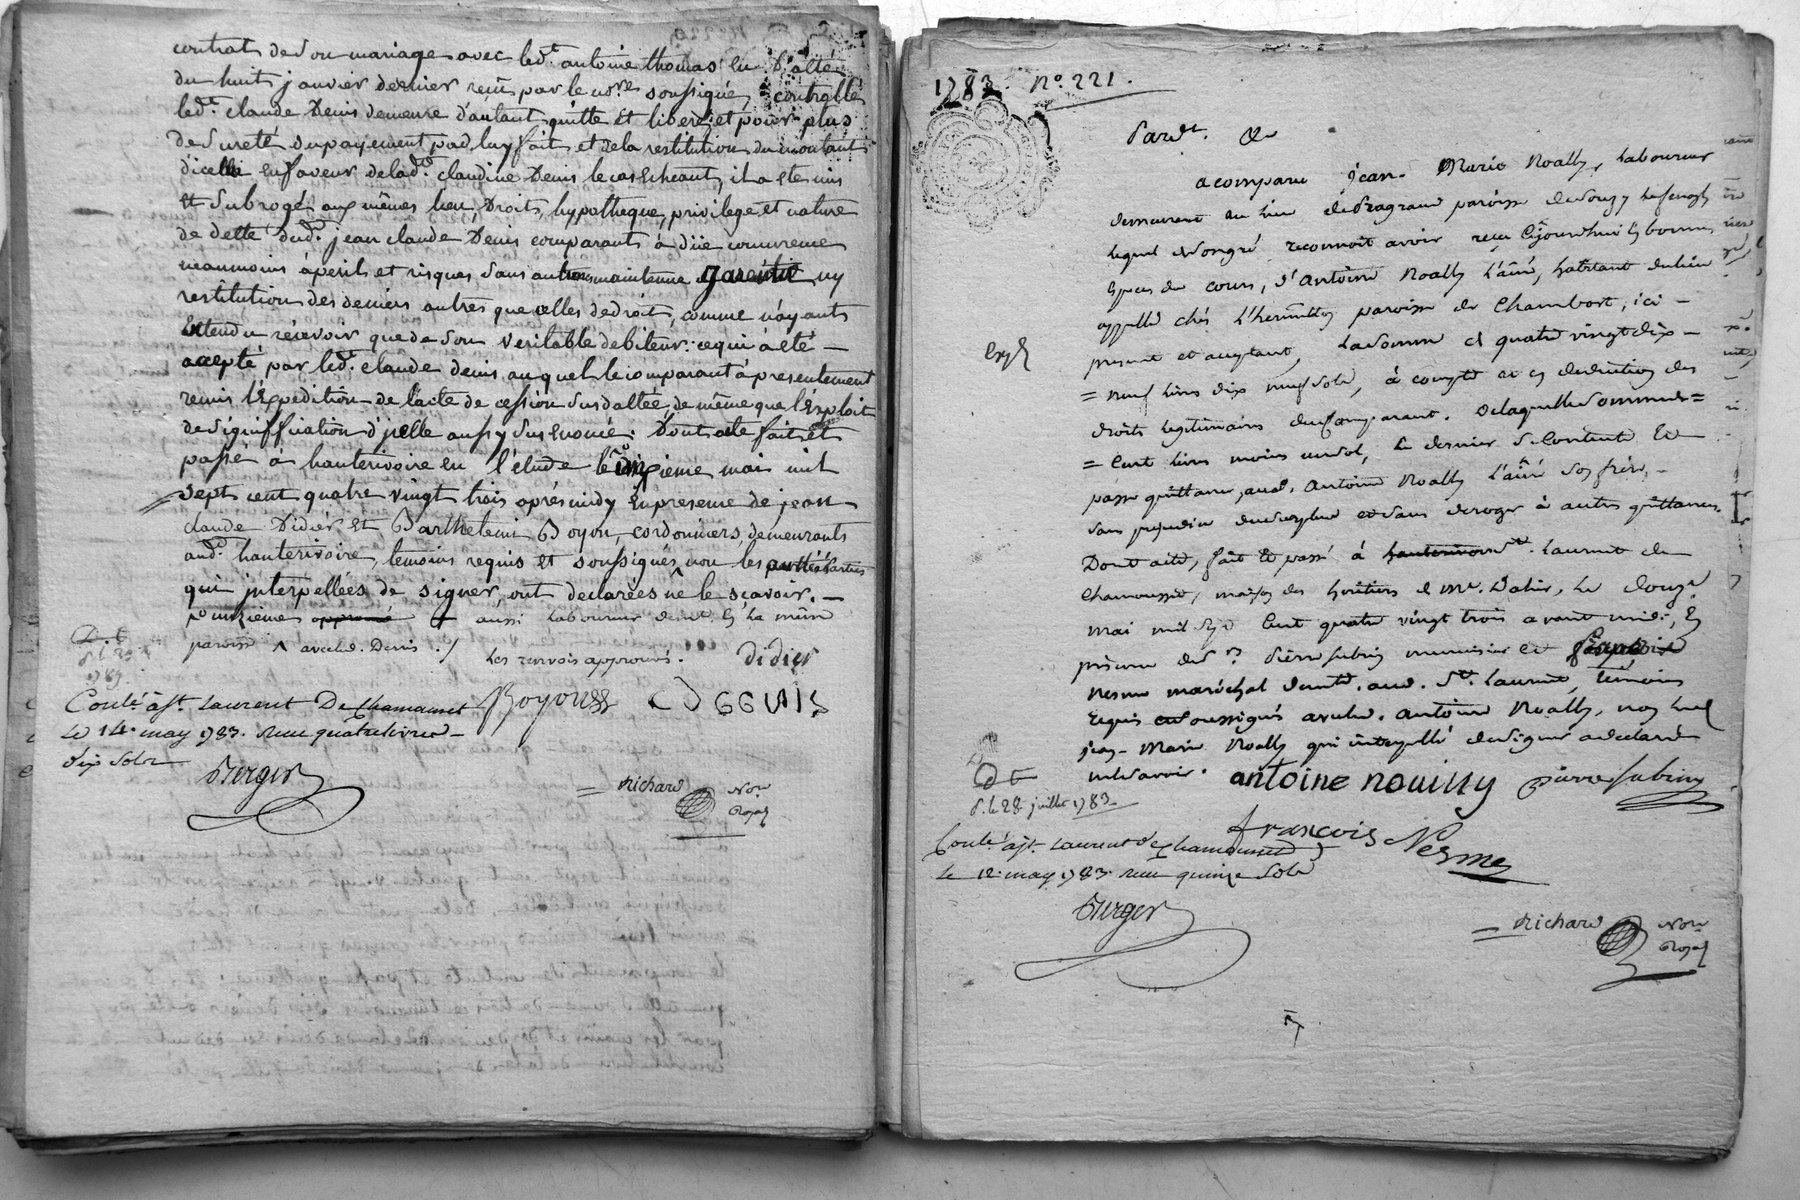 contrat de son mariage avec led.t antoine thomas en datte
du huit janvier dernier reçu par le no.re soussigné, controllé
led.t claude Denis demeure d'autant quitte et liberé, et pour plus
de sureté du payement par luy fait et de la restitution du montant
d'icelle en faveur de lad.e claudine Denis le cas echeant, il a eté mis
et subrogé aux mêmes lieu, Droits, hypotheque, privilege et nature
de dette dud.t jean claude Denis comparant à düe concurrence
neanmoins à perils et risques sans autre maintenue garentie ny
restitution des deniers autres que celles de droit, comme n'ayant
Entendu recevoir que de son veritable debiteur: ce qui à été —
accepté par led.t claude denis auquel le comparant à presentement
remis l'Expedition de l'acte de cession sus dattée, de même que l'Exploit
de signiffication d'jcelle aussy sus enoncé. Dont acte fait et
passé à hauterivoire en l'étude le mai mil
sept cent quatre vingt trois aprés midy En presence de jean
claude Didier et Barthelemi Boyon, cordoniers, demeurants
aud.t hauterivoire, temoins requis et soussignés, non les parties
qui jnterpellées de signer, ont declarées ne le scavoir. —
aussi laboureur dem.t En la même
paroisse ^ avec led. Denis ./.
Les renvois approuvés. didier
1783.
Conlé à s.t Laurent De Chamousset Boyon
Le 14. may 1783. reçu quatre livres
dix sols
Berger
= Richard No.re
Royal
1783. N.o 221.
Pard.t &c
a comparu jean-Marie Noally, Laboureur
demeurant au lieu de paroisse de Souzy
lequel de son gré reconnoit avoir reçu cejourd'hui En bonnes
Especes de cours, d'Antoine Noally l'aîné, habitant du lieu
appellé chés L'hermitte, paroisse de Chambost, ici —
present et acceptant, La somme de quatre vingt dix —
Exp.
= neuf livres dix neuf sols, à compte et en deduction des
droits legitimaires du Comparant. De laquelle somme de =
= Cent livres moins un sol, Le dernier se Contente Et
passe quittance, aud. Antoine Noally l'aîné Son frère, —
sans prejudice du surplus et sans deroger à autres quittances.
Dont acte, fait Et passé à S.t Laurent de
Chamousset, maison des heritiers de M.e Le douze
mai mil Sept Cent quatre vingt trois avant midi, En
presence de S.r Pierre Subrin et françois
Nesme maréchal dem.t aud. S.t Laurent, témoins
requis et soussignés avec led. Antoine Noally, non led
jean-Marie Noally qui interpellé de signer a declaré
ne le savoir. antoine nouilly pierre subrin
S. le 28 juillet 1783.
françois Nesme
Conlé à s.t Laurent de Chamousset
Le 12. may 1783. reçu quinze Sols
Berger
= Richard No.re
Royal